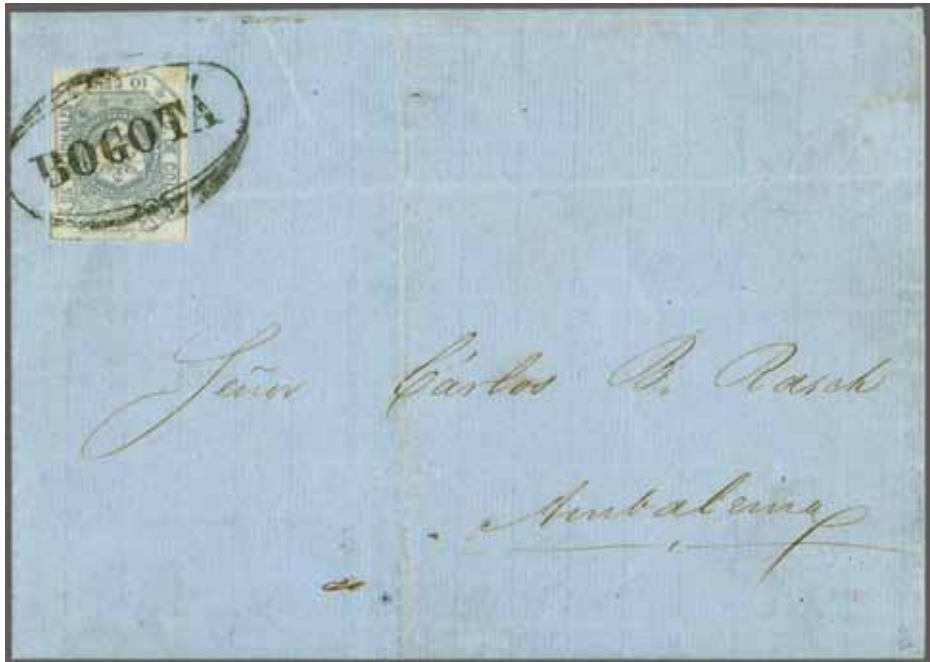 10 CENT
BOGOTÁ
Señor Cárlos B. Rasch
Ambalema